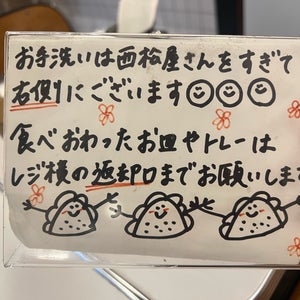 お手洗いは西松屋さんをすぎて
右側にございます
食べおわったお皿やトレーは
レジ横の返却口までお願いします